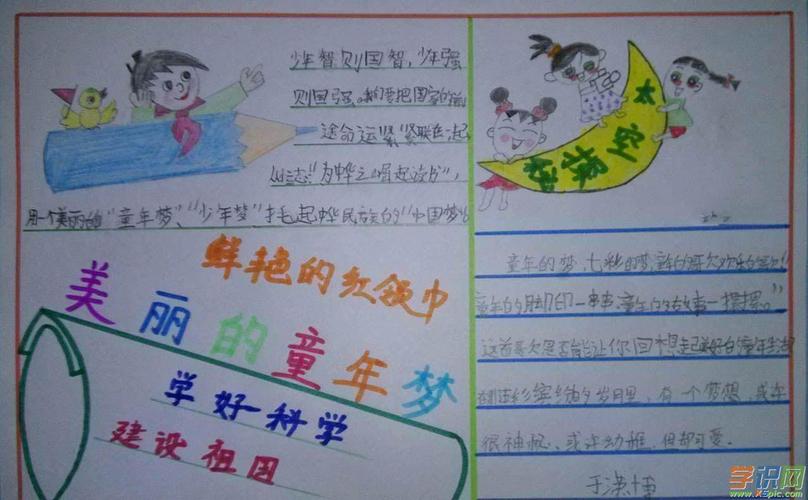 少年智则国智，少年强
则国强。我们要把国家的前
途命运紧紧联在一起
立志"为中华之崛起读书"，
用一个美丽的"童年梦"、"少年梦"托起中华民族的"中国梦"
鲜艳的红领巾
美丽的童年梦
学好科学
建设祖国
太空探秘
童年的梦，七彩的梦，童年的歌欢乐的歌
童年的脚印一串串，童年的故事一摞摞。"
这首歌是否能让你回想起美好的童年生活
在这缤纷的岁月里，有一个梦想，或许
很神秘、或许幼稚，但却可爱。
学识网
www.xspic.com